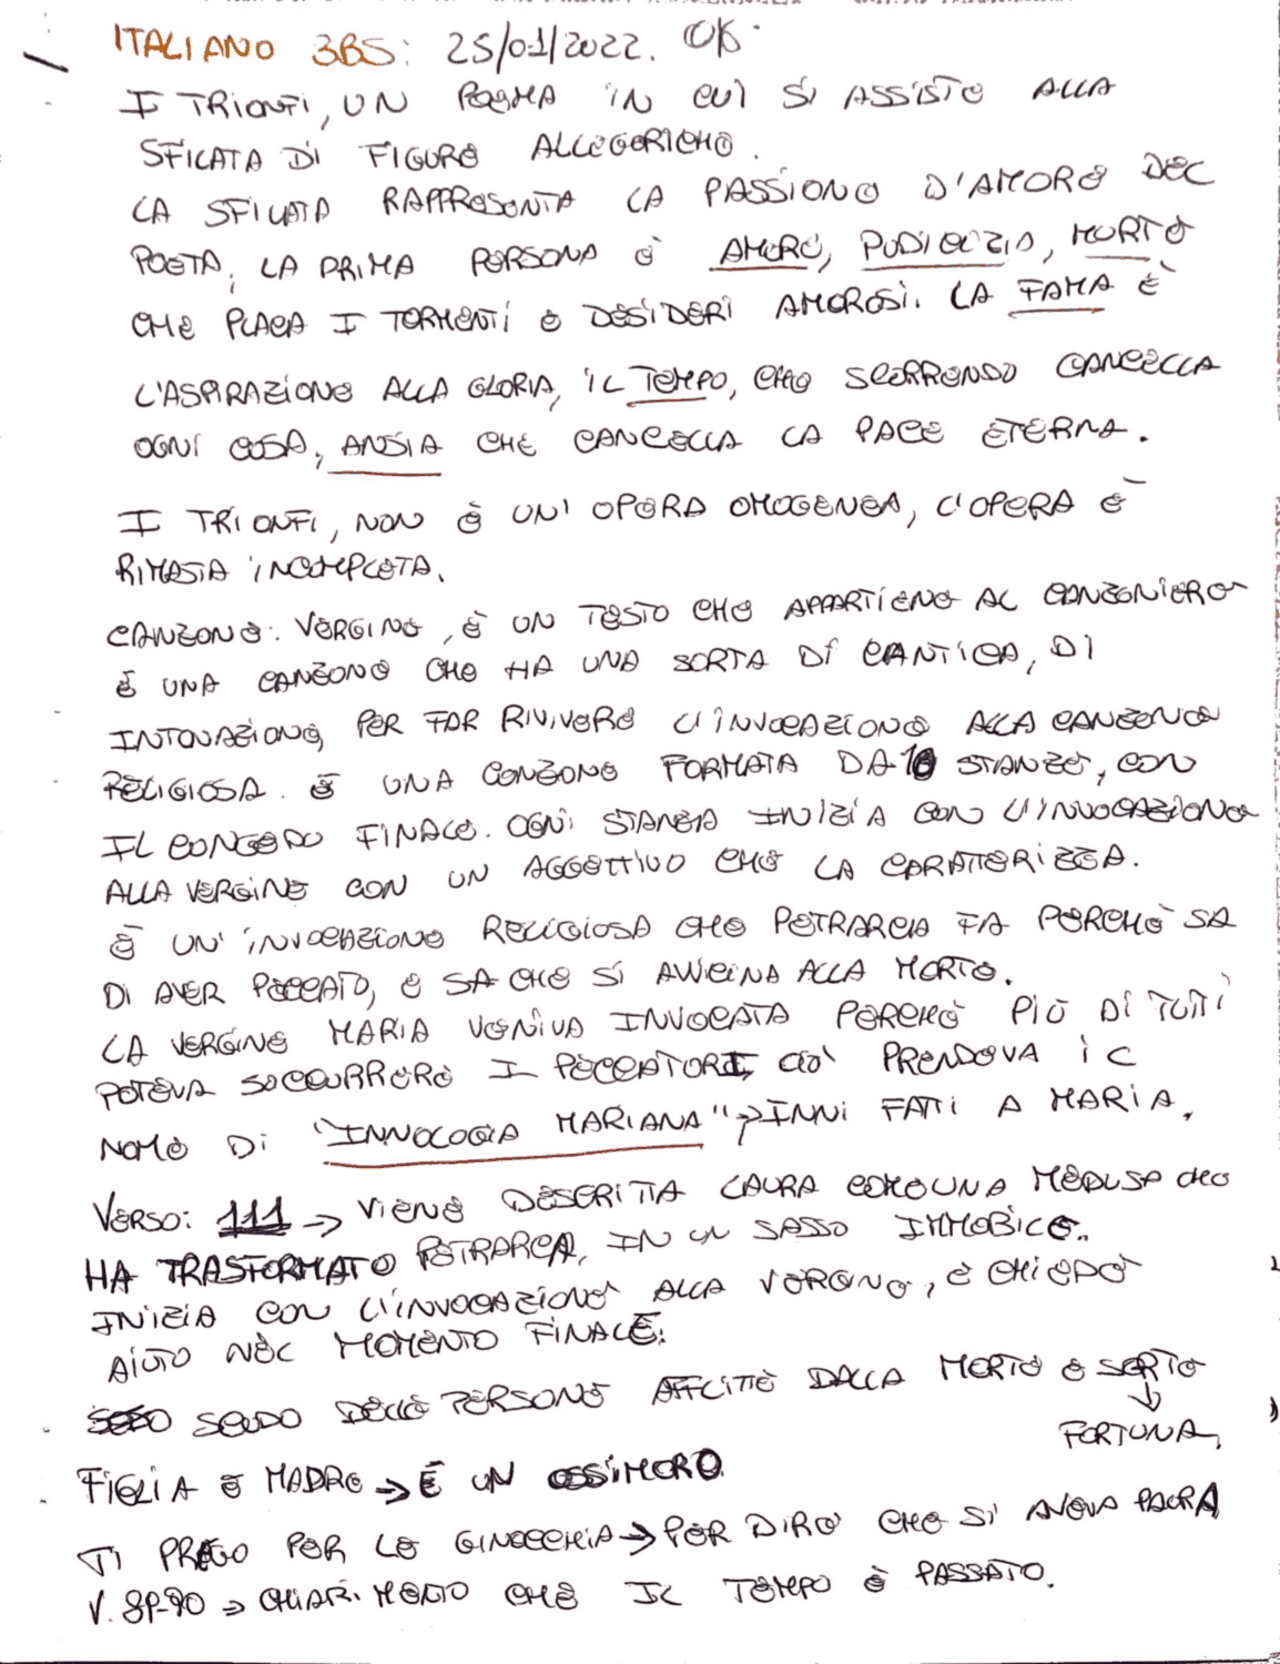 ITALIANO 3BS: 25/01/2022. OK.
I TRIONFI, UN POEMA IN CUI SI ASSISTE ALLA
SFILATA DI FIGURE ALLEGORICHE.
LA SFILATA RAPPRESENTA LA PASSIONE D'AMORE DEL
POETA, LA PRIMA PERSONA È AMORE, PUDICIZIA, MORTE
CHE PLACA I TORMENTI E DESIDERI AMOROSI. LA FAMA È
L'ASPIRAZIONE ALLA GLORIA, IL TEMPO, CHE SCORRENDO CANCELLA
OGNI COSA, ANSIA CHE CANCELLA LA PACE ETERNA.
I TRIONFI, NON È UN'OPERA OMOGENEA, L'OPERA È
RIMASTA INCOMPLETA.
CANZONE: VERGINE, È UN TESTO CHE APPARTIENE AL CANZONIERE
È UNA CANZONE CHE HA UNA SORTA DI CANTICA, DI
INTONAZIONE, PER FAR RIVIVERE L'INVOCAZIONE ALLA CANZONE
RELIGIOSA. È UNA CONZONE FORMATA DA 10 STANZE, CON
IL CONGEDO FINALE. OGNI STANZA INIZIA CON L'INVOCAZIONE
ALLA VERGINE CON UN AGGETTIVO CHE LA CARATTERIZZA.
È UN'INVOCAZIONE RELIGIOSA CHE PETRARCA FA PERCHÈ SA
DI AVER PECCATO, E SA CHE SI AVVICINA ALLA MORTE.
LA VERGINE MARIA VENIVA INVOCATA PERCHÈ PIÙ DI TUTTI
POTEVA SOCCORRERE I PECCATORI, CIÒ PRENDEVA IL
NOME DI "INNOLOGIA MARIANA" → INNI FATTI A MARIA.
VERSO: 111 → VIENE DESCRITTA LAURA COME UNA MEDUSA CHE
HA TRASFORMATO PETRARCA, IN UN SASSO IMMOBILE.
INIZIA CON L'INVOCAZIONE ALLA VERGINE, E CHIEDE
AIUTO NEL MOMENTO FINALE.
SCUDO DELLE PERSONE AFFLITTE DALLA MORTE E SORTE
↓
FORTUNA,
FIGLIA E MADRE → È UN OSSIMORO
TI PREGO PER LE GINOCCHIA → PER DIRE CHE SI AVEVA PAURA
V. 89-90 → CHIAR. MENTO CHE IL TEMPO È PASSATO.